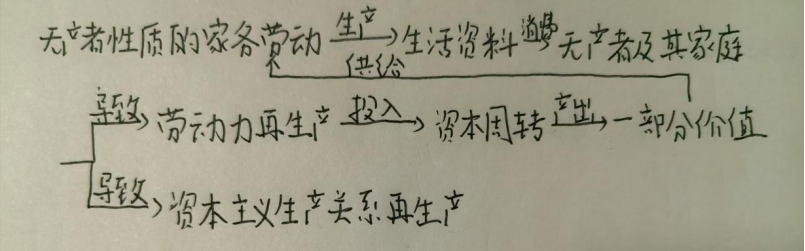 无产者性质的家务劳动 生产 供给 生活资料 消费 无产者及其家庭
导致 劳动力再生产 投入 资本周转 产出 一部分价值
导致 资本主义生产关系再生产